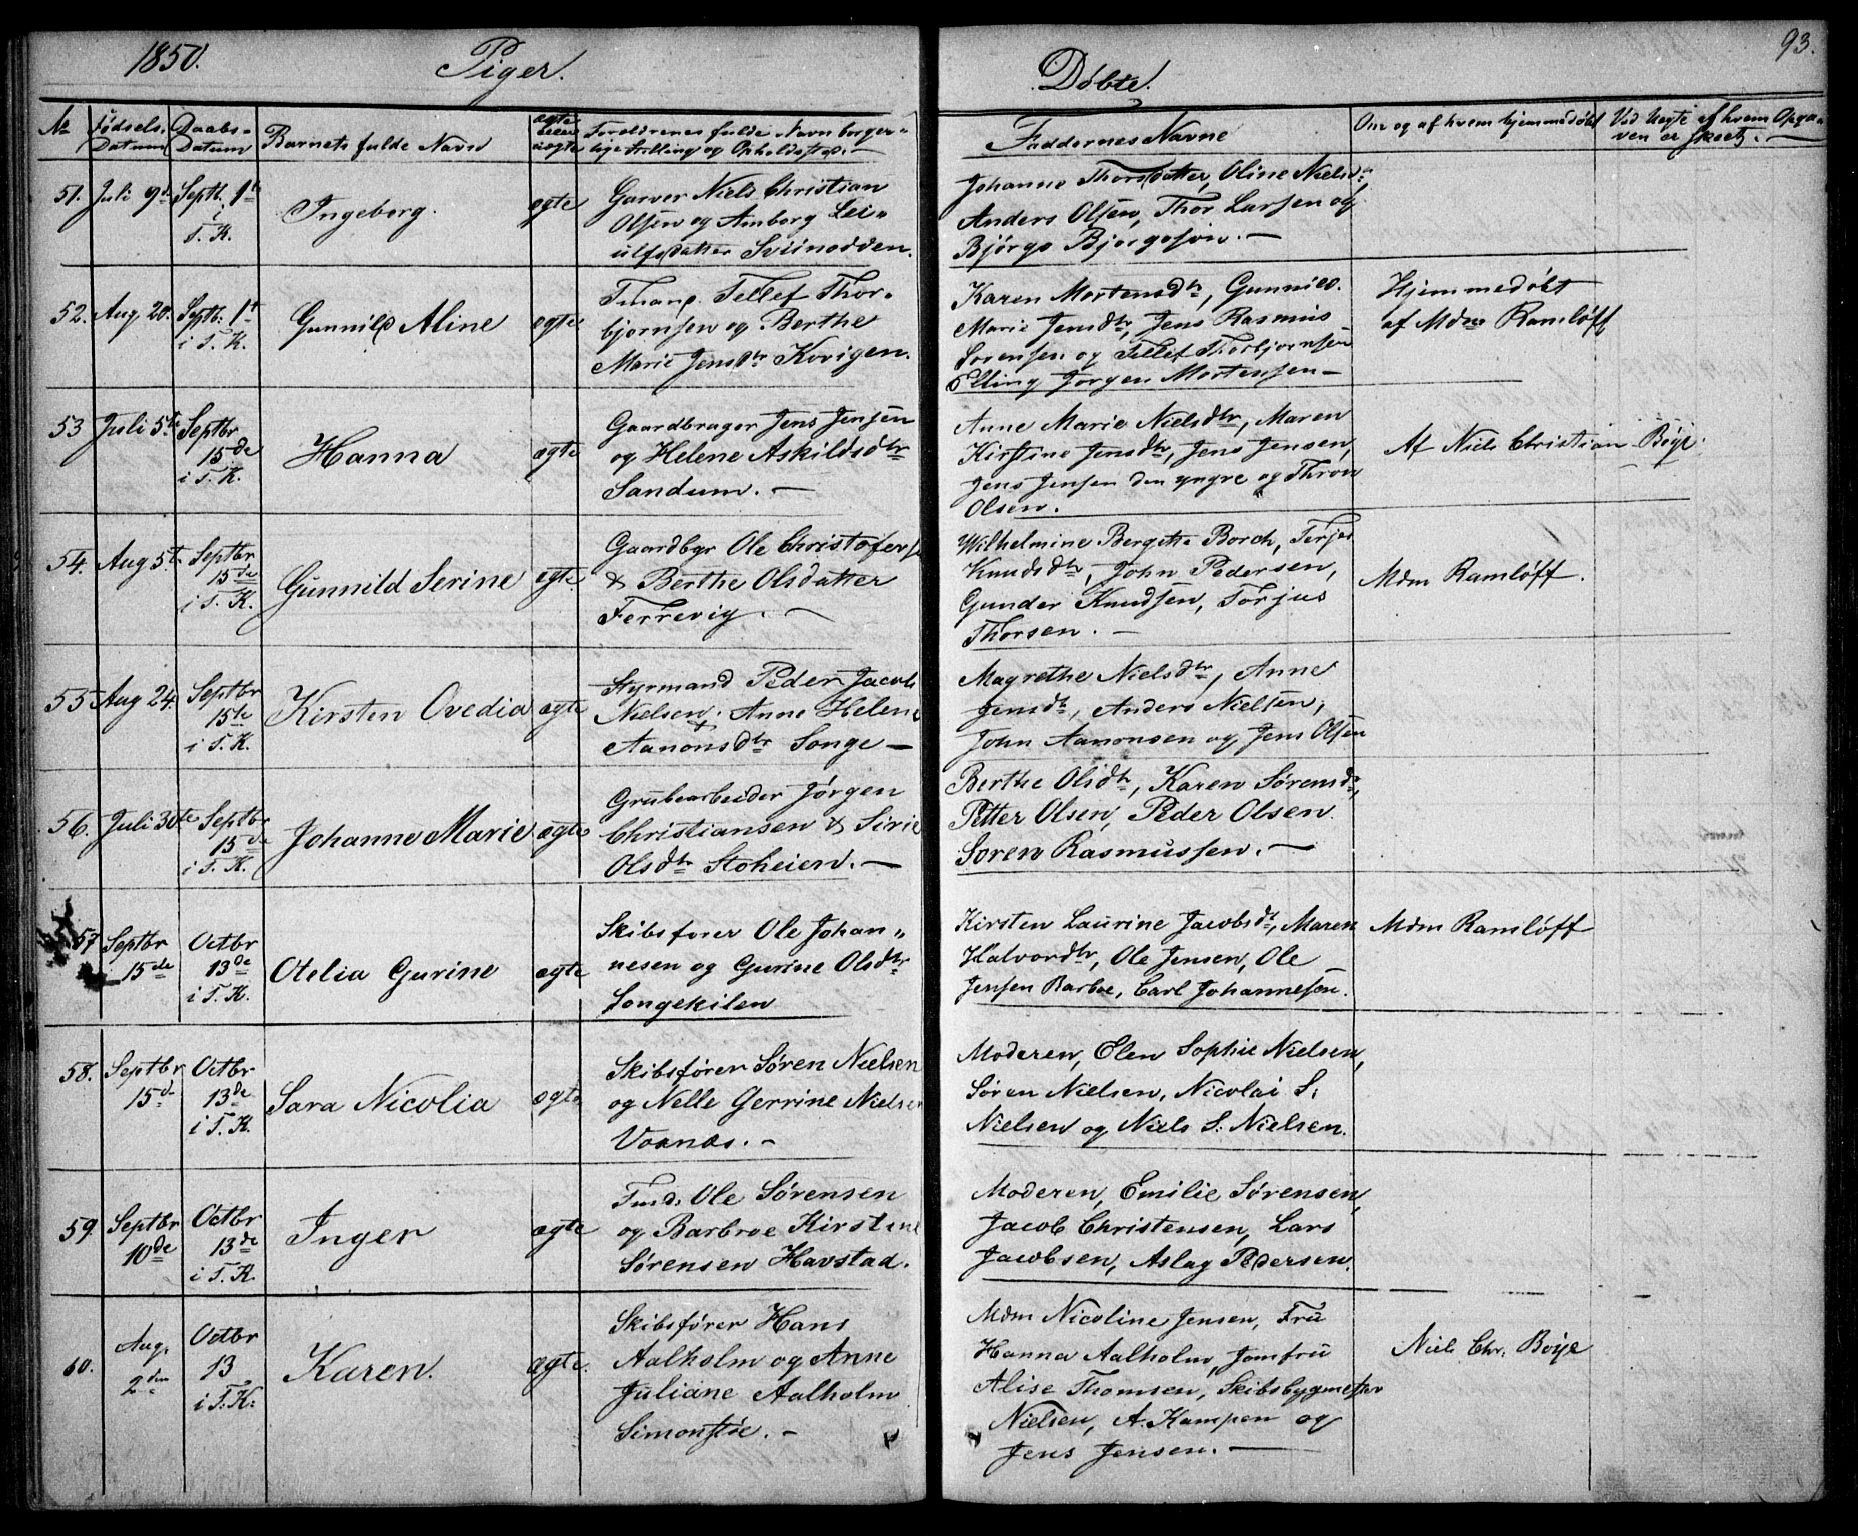 1850.
Piger.
Døbte.
93.
No
Fødsels-
Datum
Daabs-
Datum
Barnets fulde Navn
ægte
eller
uægte
Forældrenes fulde Navn borger-
lige Stilling og Opholdssted.
Faddernes Navne
Om og af hvem hjemmedøbt
Ved Uægte af hvem Opga-
ven er skeet.
51.
Juli 9d
Septb. 1te
i
T. K.
Ingeborg.
ægte
Garver Niels Christian
Olsen og Amborg Lei-
ulfsdatter Sviinodden.
Johanne Thorsdatter, Oline Nielsdr
Anders Olsen, Thor Larsen og
Bjørge Bjørgesøn.
52.
Aug 20.
Septb: 1t
i T. K.
Gunnild Aline
ægte
Tmand. Tellef Thor-
bjørnsen og Berthe
Marie Jensdtr Kovigen.
Karen Mortensdtr, Gunnild
Marie Jensdtr, Jens Rasmus
Sørensen og Tellef Thorbjørnsen
Elling Jørgen Mortensen
Hjemmedøbt
af Mdm Ramløff
53
Juli 5te
Septbr
15de
i T. K.
Hanna
ægte
Gaardbruger Jens Jensen
og Helene Askildsdtr
Sandum.
Anne Marie Nielsdtr, Maren
Kirstine Jensdtr, Jens Jensen,
Jens Jensen den yngre og Thron
Olsen.
Af Niels Christian Bøye.
54.
Aug 5t
Septbr
15de
i T. K.
Gunnild Serine
ægte.
Gaardbgr Ole Christofers
& Berthe Olsdatter
Ferrevig.
Wilhelmine Bergethe Borch, Terjer
Knudsdtr, John Pedersen,
Gunder Knudsen, Torjus
Thorsen.
Mdm Ramløff.
55
Aug 24.
Septbr
15te
i T. K.
Kirsten Ovedia
ægte
Styrmand Peder Jacob
Nielsen & Anne Helene
Aanonsdtr Songe
Magrethe Nielsdtr, Anne
Jensdtr, Anders Nielsen,
John Aanonsen og Jens Olsen
56.
Juli 30te
Septbr
15de
i T. K.
Johanne Marie
ægte
Grubearbeider Jørgen
Christiansen & Sirie
Olsdtr Stoheien.
Berthe Olsdtr, Karen Sørensdr,
Petter Olsen, Peder Olsen
Søren Rasmussen.
57
Septbr
15de
Octbr
13de
i T. K.
Otelia Gurine
ægte
Skibsfører Ole Johan-
nesen og Gurine Olsdtr
Songekilen
Kirsten Laurine Jacobsdt, Maren
Halvordtr, Ole Jensen, Ole
Jensen Barboe, Carl Johannesen.
Mdm Ramløff
58.
Septbr
15d
Octbr
13de
i T. K.
Sara Nicolia
ægte
Skibsfører Søren Nielsen
og Nelle Gerrine Nielsen
Voxnæs.
Moderen, Elen Sophie Nielsen,
Søren Nielsen, Nicolai S:
Nielsen og Niels S: Nielsen.
59.
Septbr
10de
Octbr
13de
i T. K.
Inger
ægte
Tmd: Ole Sørensen
og Barbroe Kirstine
Sørensen Havstad.
Moderen, Emilie Sørensen,
Jacob Christensen, Lars
Jacobsen, Aslag Pedersen.
60.
Aug.
2den
Octbr
13
i T. K.
Karen.
ægte.
Skibsfører Hans
Aalholm og Anne
Juliane Aalholm
Simonstøe.
Mdm Nicoline Jensen, Fru
Hanna Aalholm, Jomfru
Alise Thomsen, Skibsbygmester
Nielsen, A. Kampen og
Jens Jensen.
Niels Chr. Bøye